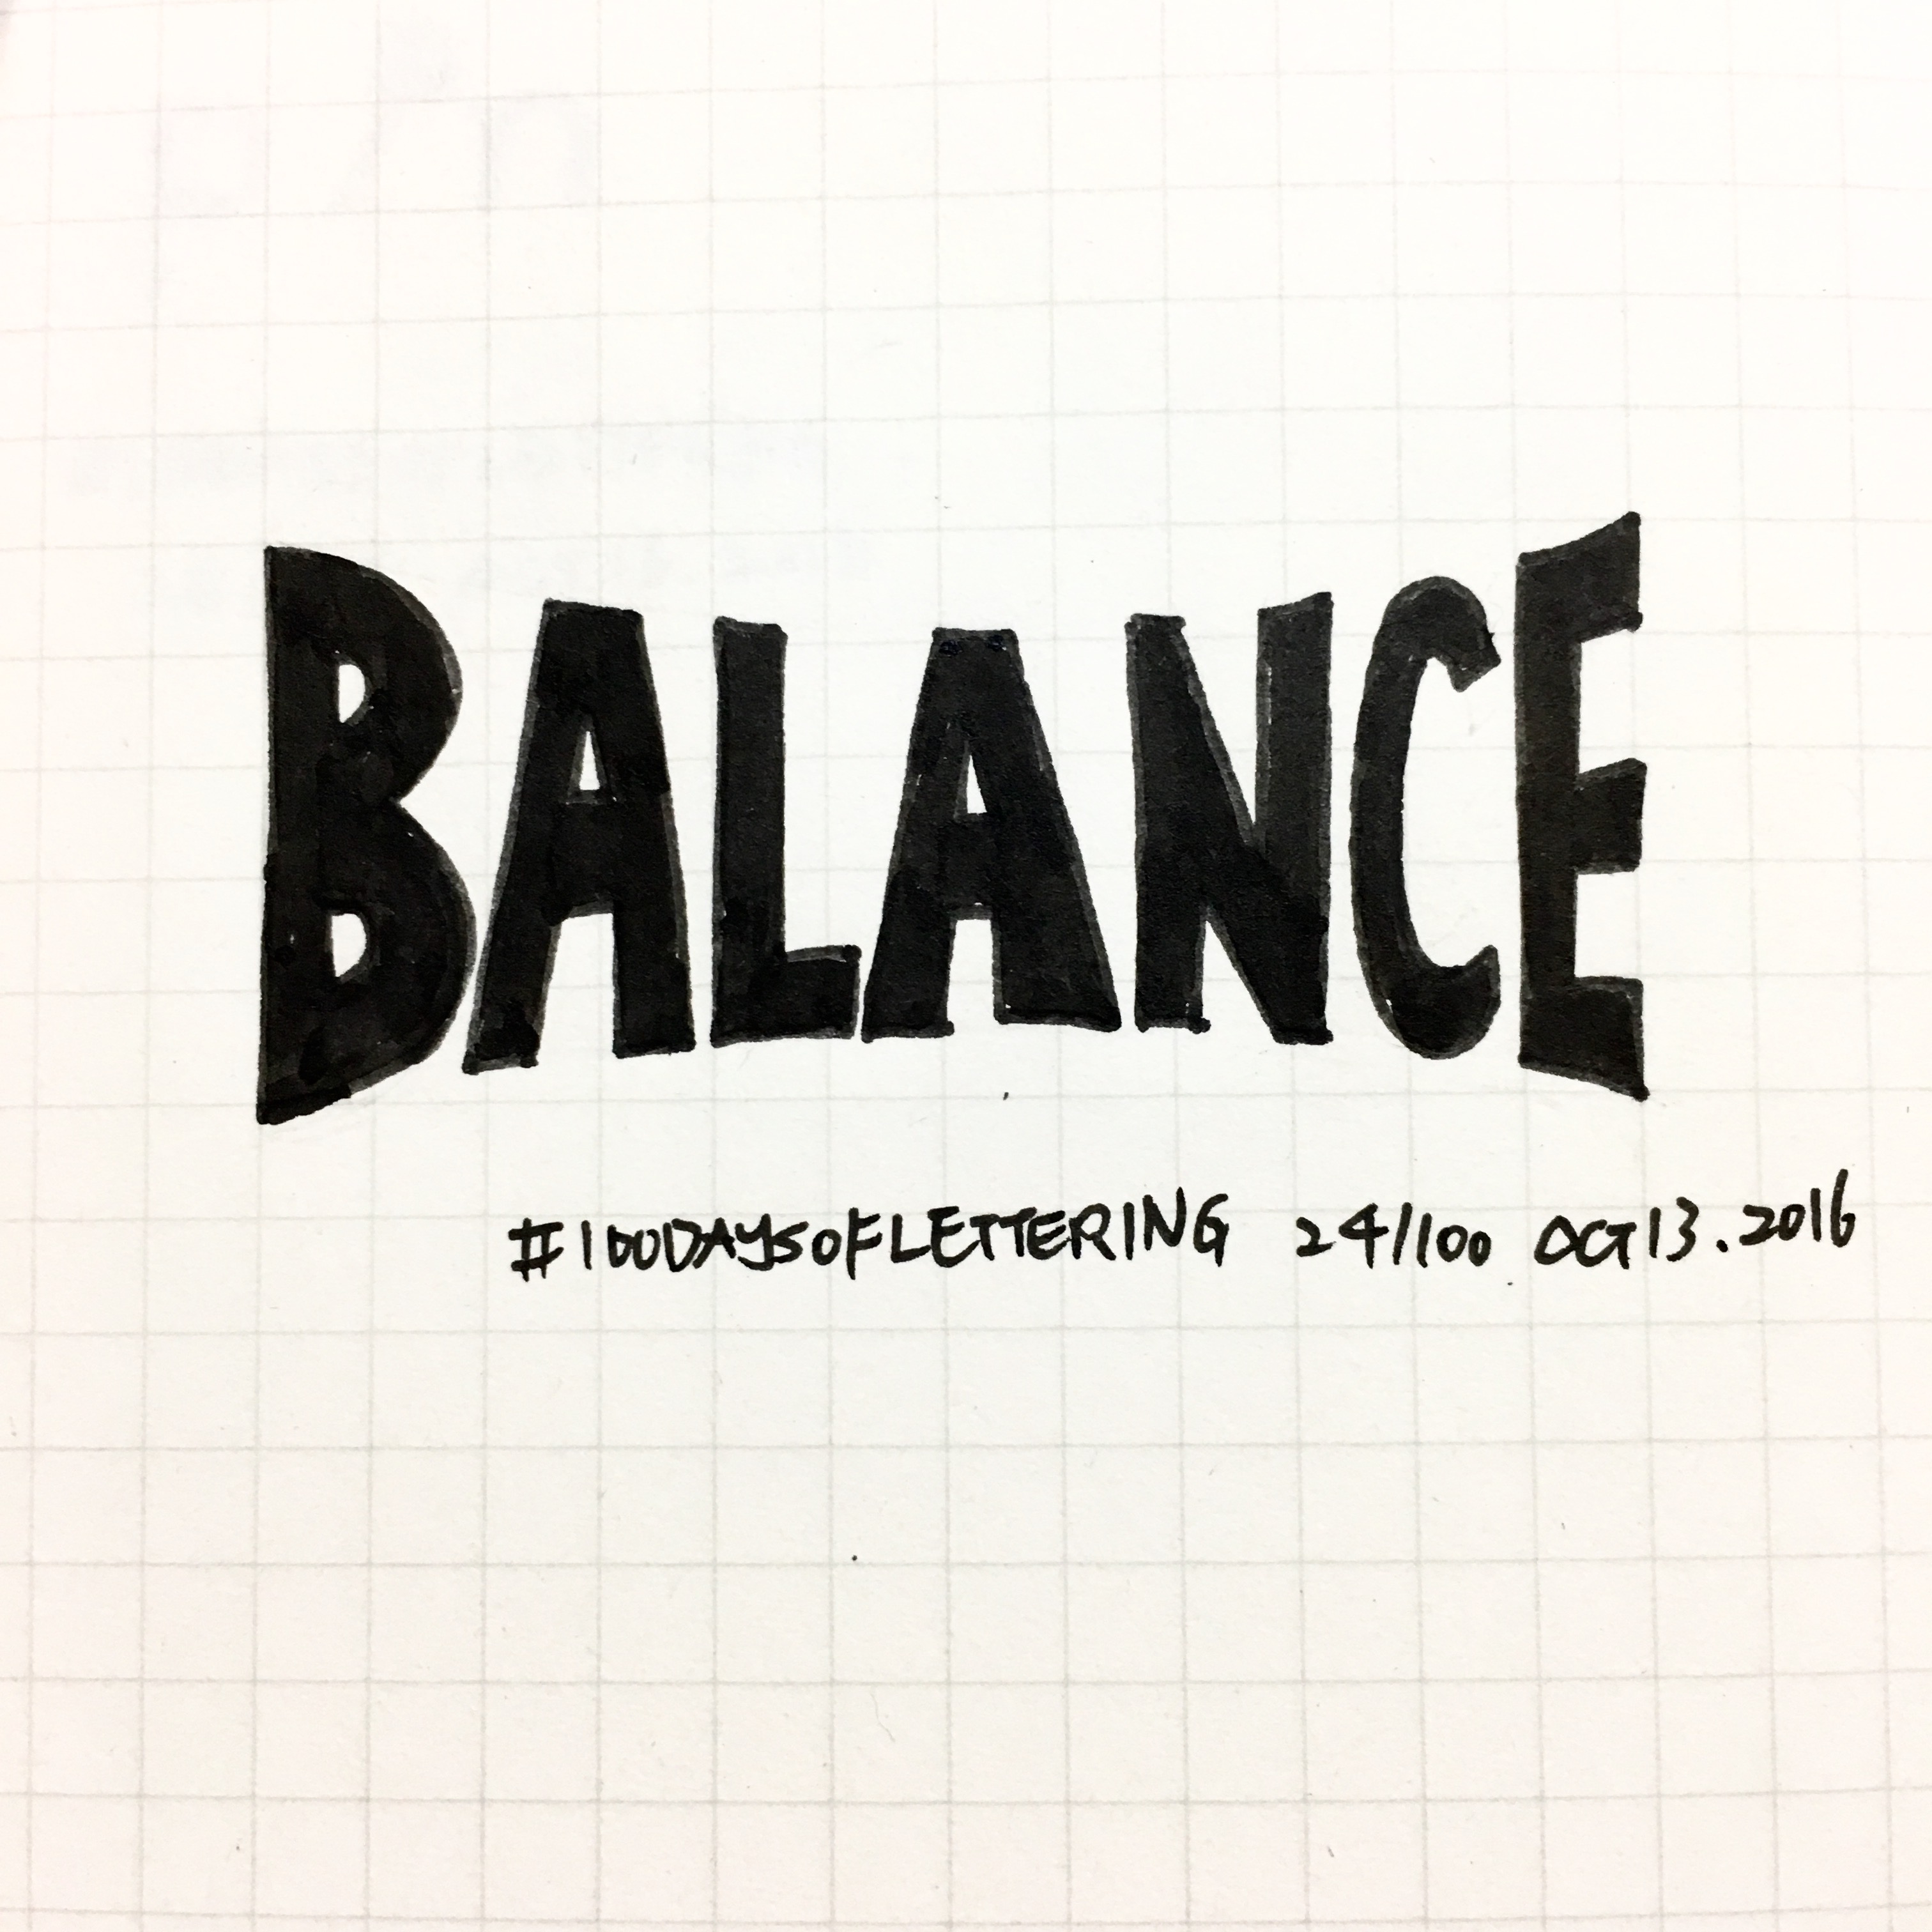 BALANCE
#100DAYSOFLETTERING 24/100 OCT13.2016